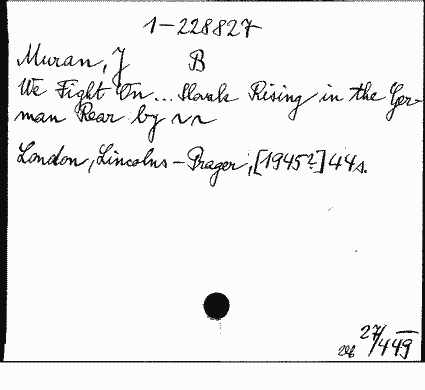 1-228827
Muran, J B
We Fight On... Slovak Rising in the Ger-
man Rear by ~~
London, Lincolns-Prager, [1945?] 44s.
27/449